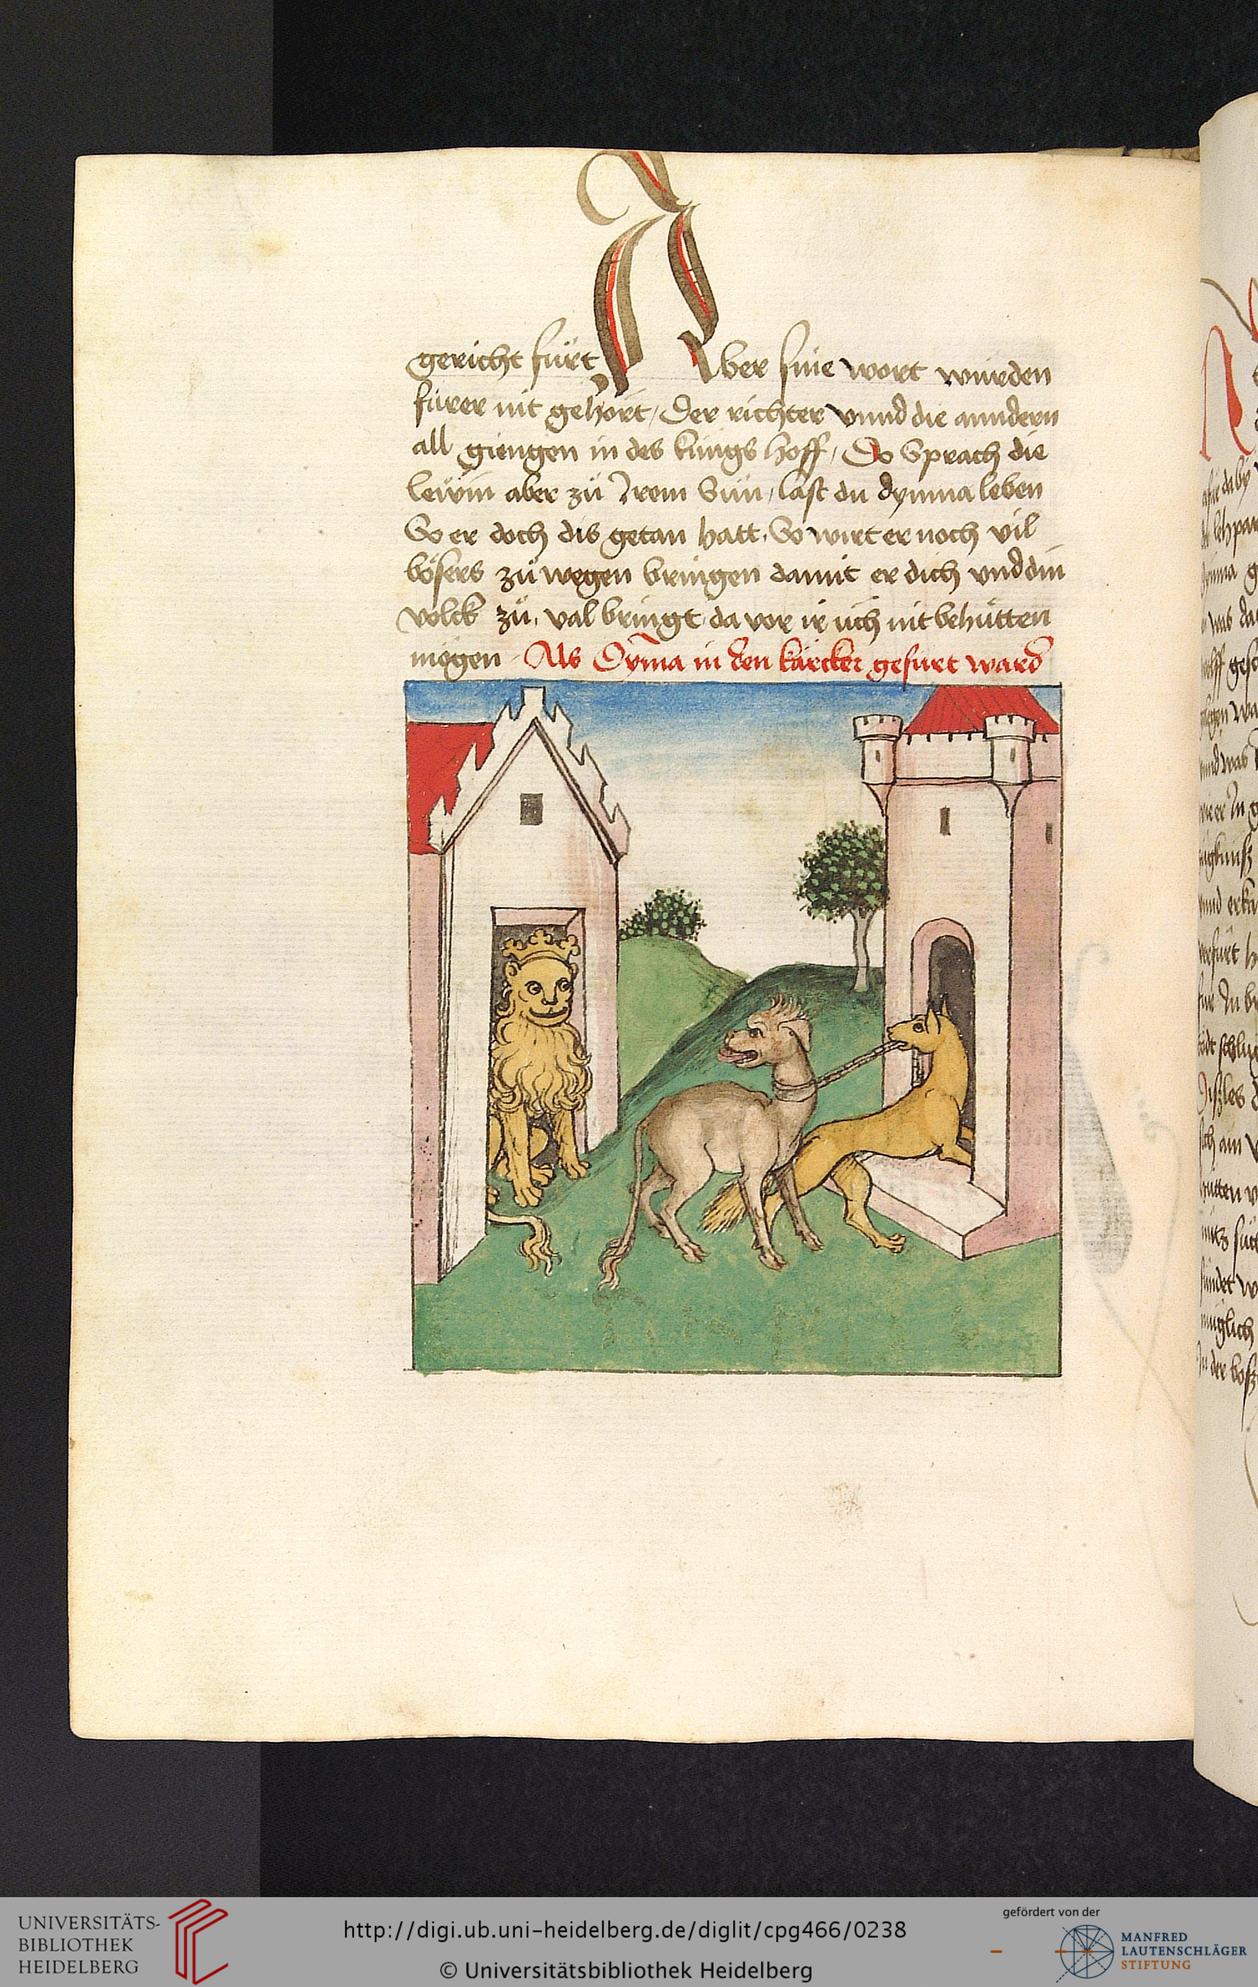 gericht fürt Aber sine wort würden
fürer nit gehört / Der richter vnnd die anndern
all giengen in des künigs hoff / Do sprach die
lewin aber zü Irem Sün / last du dymna leben
So er doch dis getan hatt, So wirt er noch vil
bösers zü wegen bringen damit er dich vnd din
volck zü, val bringt da vor ir üch nit behütten
mögen Als Dyma in den kärcker gefürt ward
UNIVERSITÄTS-
BIBLIOTHEK
HEIDELBERG
http://digi.ub.uni-heidelberg.de/diglit/cpg466/0238
© Universitätsbibliothek Heidelberg
gefördert von der
MANFRED
LAUTENSCHLÄGER
STIFTUNG